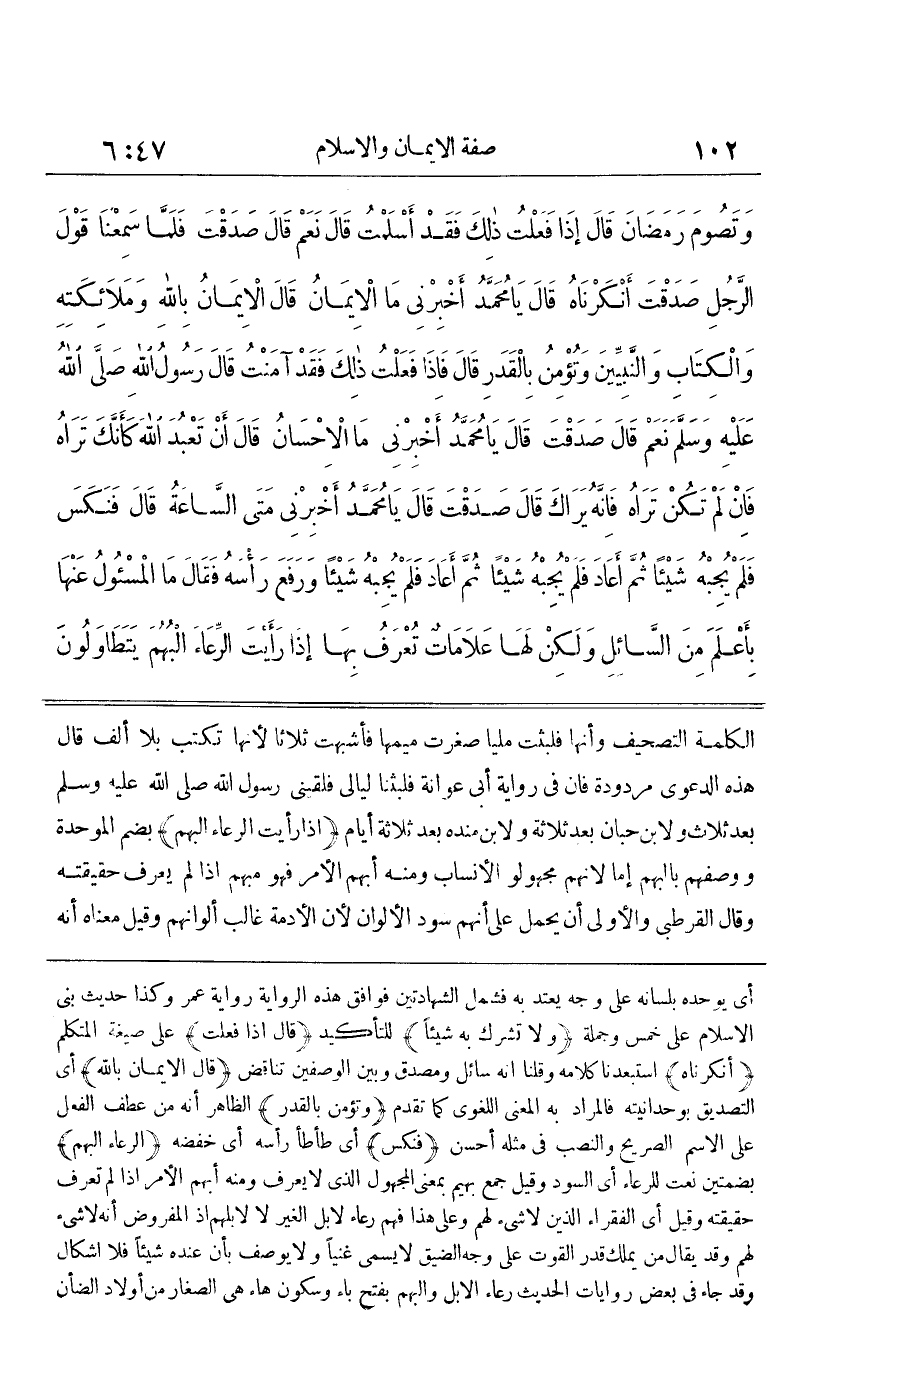 ١٠٢ صفة الايمان والاسلام ٤٧:٦
وَتَصُومَ رَمَضَانَ قَالَ إِذَا فَعَلْتُ ذٰلِكَ فَقَدْ أَسْلَمْتُ قَالَ نَعَمْ قَالَ صَدَقْتَ فَلَمَّا سَمِعْنَا قَوْلَ
الرَّجُلِ صَدَقْتَ أَنْكَرْنَاهُ قَالَ يَامُحَمَّدُ أَخْبِرْنِى مَا الْإِيمَانُ قَالَ الْإِيمَانُ بِاللهِ وَمَلَائِكَتِهِ
وَالْكِتَابِ وَالنَّبِيِّينَ وَتُؤْمِنُ بِالْقَدَرِ قَالَ فَاذَا فَعَلْتُ ذٰلِكَ فَقَدْ آمَنْتُ قَالَ رَسُولُ اللهِ صَلَّى اللهُ
عَلَيْهِ وَسَلَّمَ نَعَمْ قَالَ صَدَقْتَ قَالَ يَامُحَمَّدُ أَخْبِرْنِى مَا الْإِحْسَانُ قَالَ أَنْ تَعْبُدَ اللهَ كَأَنَّكَ تَرَاهُ
فَانْ لَمْ تَكُنْ تَرَاهُ فَانَّهُ يَرَاكَ قَالَ صَدَقْتَ قَالَ يَامُحَمَّدُ أَخْبِرْنِى مَتَى السَّاعَةُ قَالَ فَنَكَسَ
فَلَمْ يُجِبْهُ شَيْئًا ثُمَّ أَعَادَ فَلَمْ يُجِبْهُ شَيْئًا ثُمَّ أَعَادَ فَلَمْ يُجِبْهُ شَيْئًا وَرَفَعَ رَأْسَهُ فَقَالَ مَا الْمَسْئُولُ عَنْهَا
بِأَعْلَمَ مِنَ السَّائِلِ وَلَكِنْ لَهَا عَلَامَاتٌ تُعْرَفُ بِهَا إِذَا رَأَيْتَ الرِّعَاءَ الْبُهُمَ يَتَطَاوَلُونَ
الكلمة التصحيف وأنها فلبثت مليا صغرت ميمها فأشبهت ثلاثا لأنها تكتب بلا ألف قال
هذه الدعوى مردودة فان فى رواية أبى عوانة فلبثنا ليالى فلقينى رسول الله صلى الله عليه وسلم
بعد ثلاث ولابن حبان بعد ثلاثة ولابن منده بعد ثلاثة أيام ﴿اذا رأيت الرعاء البهم﴾ بضم الموحدة
ووصفهم بالبهم إما لانهم مجهولو الأنساب ومنه أبهم الأمر فهو مبهم اذا لم يعرف حقيقته
وقال القرطبى والأولى أن يحمل على أنهم سود الألوان لأن الأدمة غالب ألوانهم وقيل معناه أنه
أى يوحده بلسانه على وجه يعتد به فشمل الشهادتين فوافق هذه الرواية رواية عمر وكذا حديث بنى
الاسلام على خمس وجملة ﴿ولا تشرك به شيئاً﴾ للتأكيد ﴿قال اذا فعلت﴾ على صيغة المتكلم
﴿أنكرناه﴾ استبعدنا كلامه وقلنا انه سائل ومصدق وبين الوصفين تناقض ﴿قال الايمان بالله﴾ أى
التصديق بوحدانيته فالمراد به المعنى اللغوى كما تقدم ﴿وتؤمن بالقدر﴾ الظاهر أنه من عطف الفعل
على الاسم الصريح والنصب فى مثله أحسن ﴿فنكس﴾ أى طأطأ رأسه أى خفضه ﴿الرعاء البهم﴾
بضمتين نعت للرعاء أى السود وقيل جمع بهيم بمعنى المجهول الذى لا يعرف ومنه أبهم الأمر اذا لم تعرف
حقيقته وقيل أى الفقراء الذين لاشىء لهم وعلى هذا فهم رعاء لابل الغير لا لابلهم اذ المفروض أنه لاشىء
لهم وقد يقال من يملك قدر القوت على وجه الضيق لا يسمى غنياً ولا يوصف بأن عنده شيئاً فلا اشكال
وقد جاء فى بعض روايات الحديث رعاء الابل والبهم بفتح باء وسكون هاء هى الصغار من أولاد الضأن